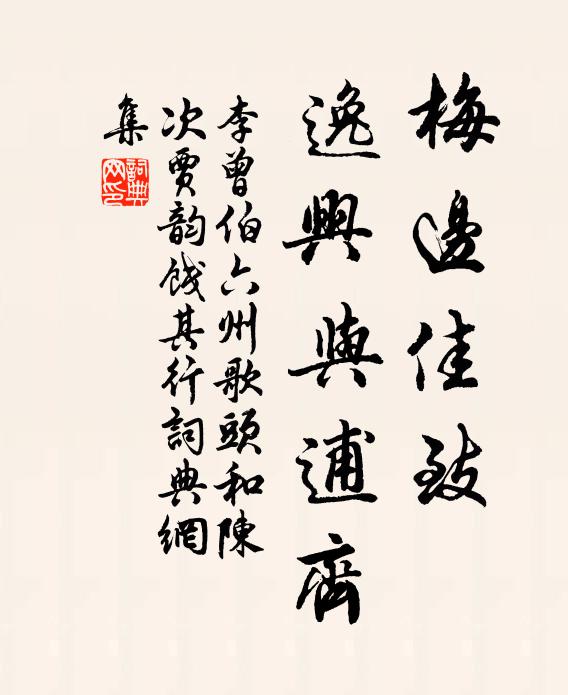 梅邊佳致
逸興與逋齊
李曾伯六州歌頭和陳
次賈韵餞其行詞典網
集
詞典網印